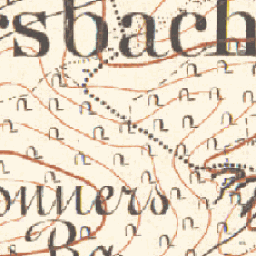 rsbach
onners
Ba